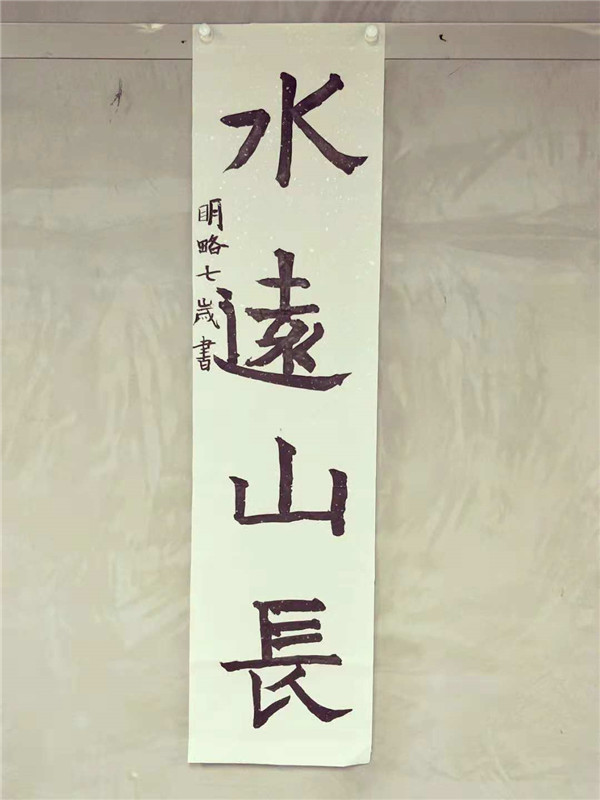 水遠山長
明略七歲書